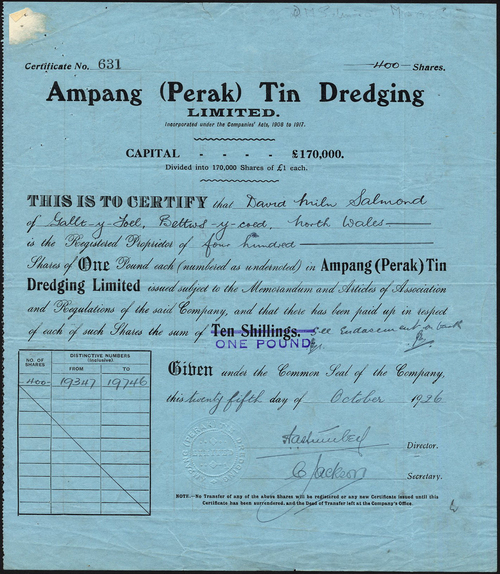 Certificate No. 631
400 Shares.
Ampang (Perak) Tin Dredging
LIMITED.
Incorporated under the Companies' Acts, 1908 to 1917.
CAPITAL - - - - £170,000.
Divided into 170,000 Shares of £1 each.
THIS IS TO CERTIFY that David Milne Salmond
of Gallt-y-Foel, Bettws-y-coed, North Wales
is the Registered Proprietor of four hundred
Shares of One Pound each (numbered as undernoted) in Ampang (Perak) Tin
Dredging Limited issued subject to the Memorandum and Articles of Association
and Regulations of the said Company, and that there has been paid up in respect
of each of such Shares the sum of Ten Shillings. See Endorsement on back
ONE POUND
NO. OF SHARES
DISTINCTIVE NUMBERS
(Inclusive)
FROM TO
400 19347 19746
Given under the Common Seal of the Company,
this twenty fifth day of October 1926
Director.
C Jackson
Secretary.
NOTE.—No Transfer of any of the above Shares will be registered or any new Certificate issued until this
Certificate has been surrendered, and the Deed of Transfer left at the Company's Office.